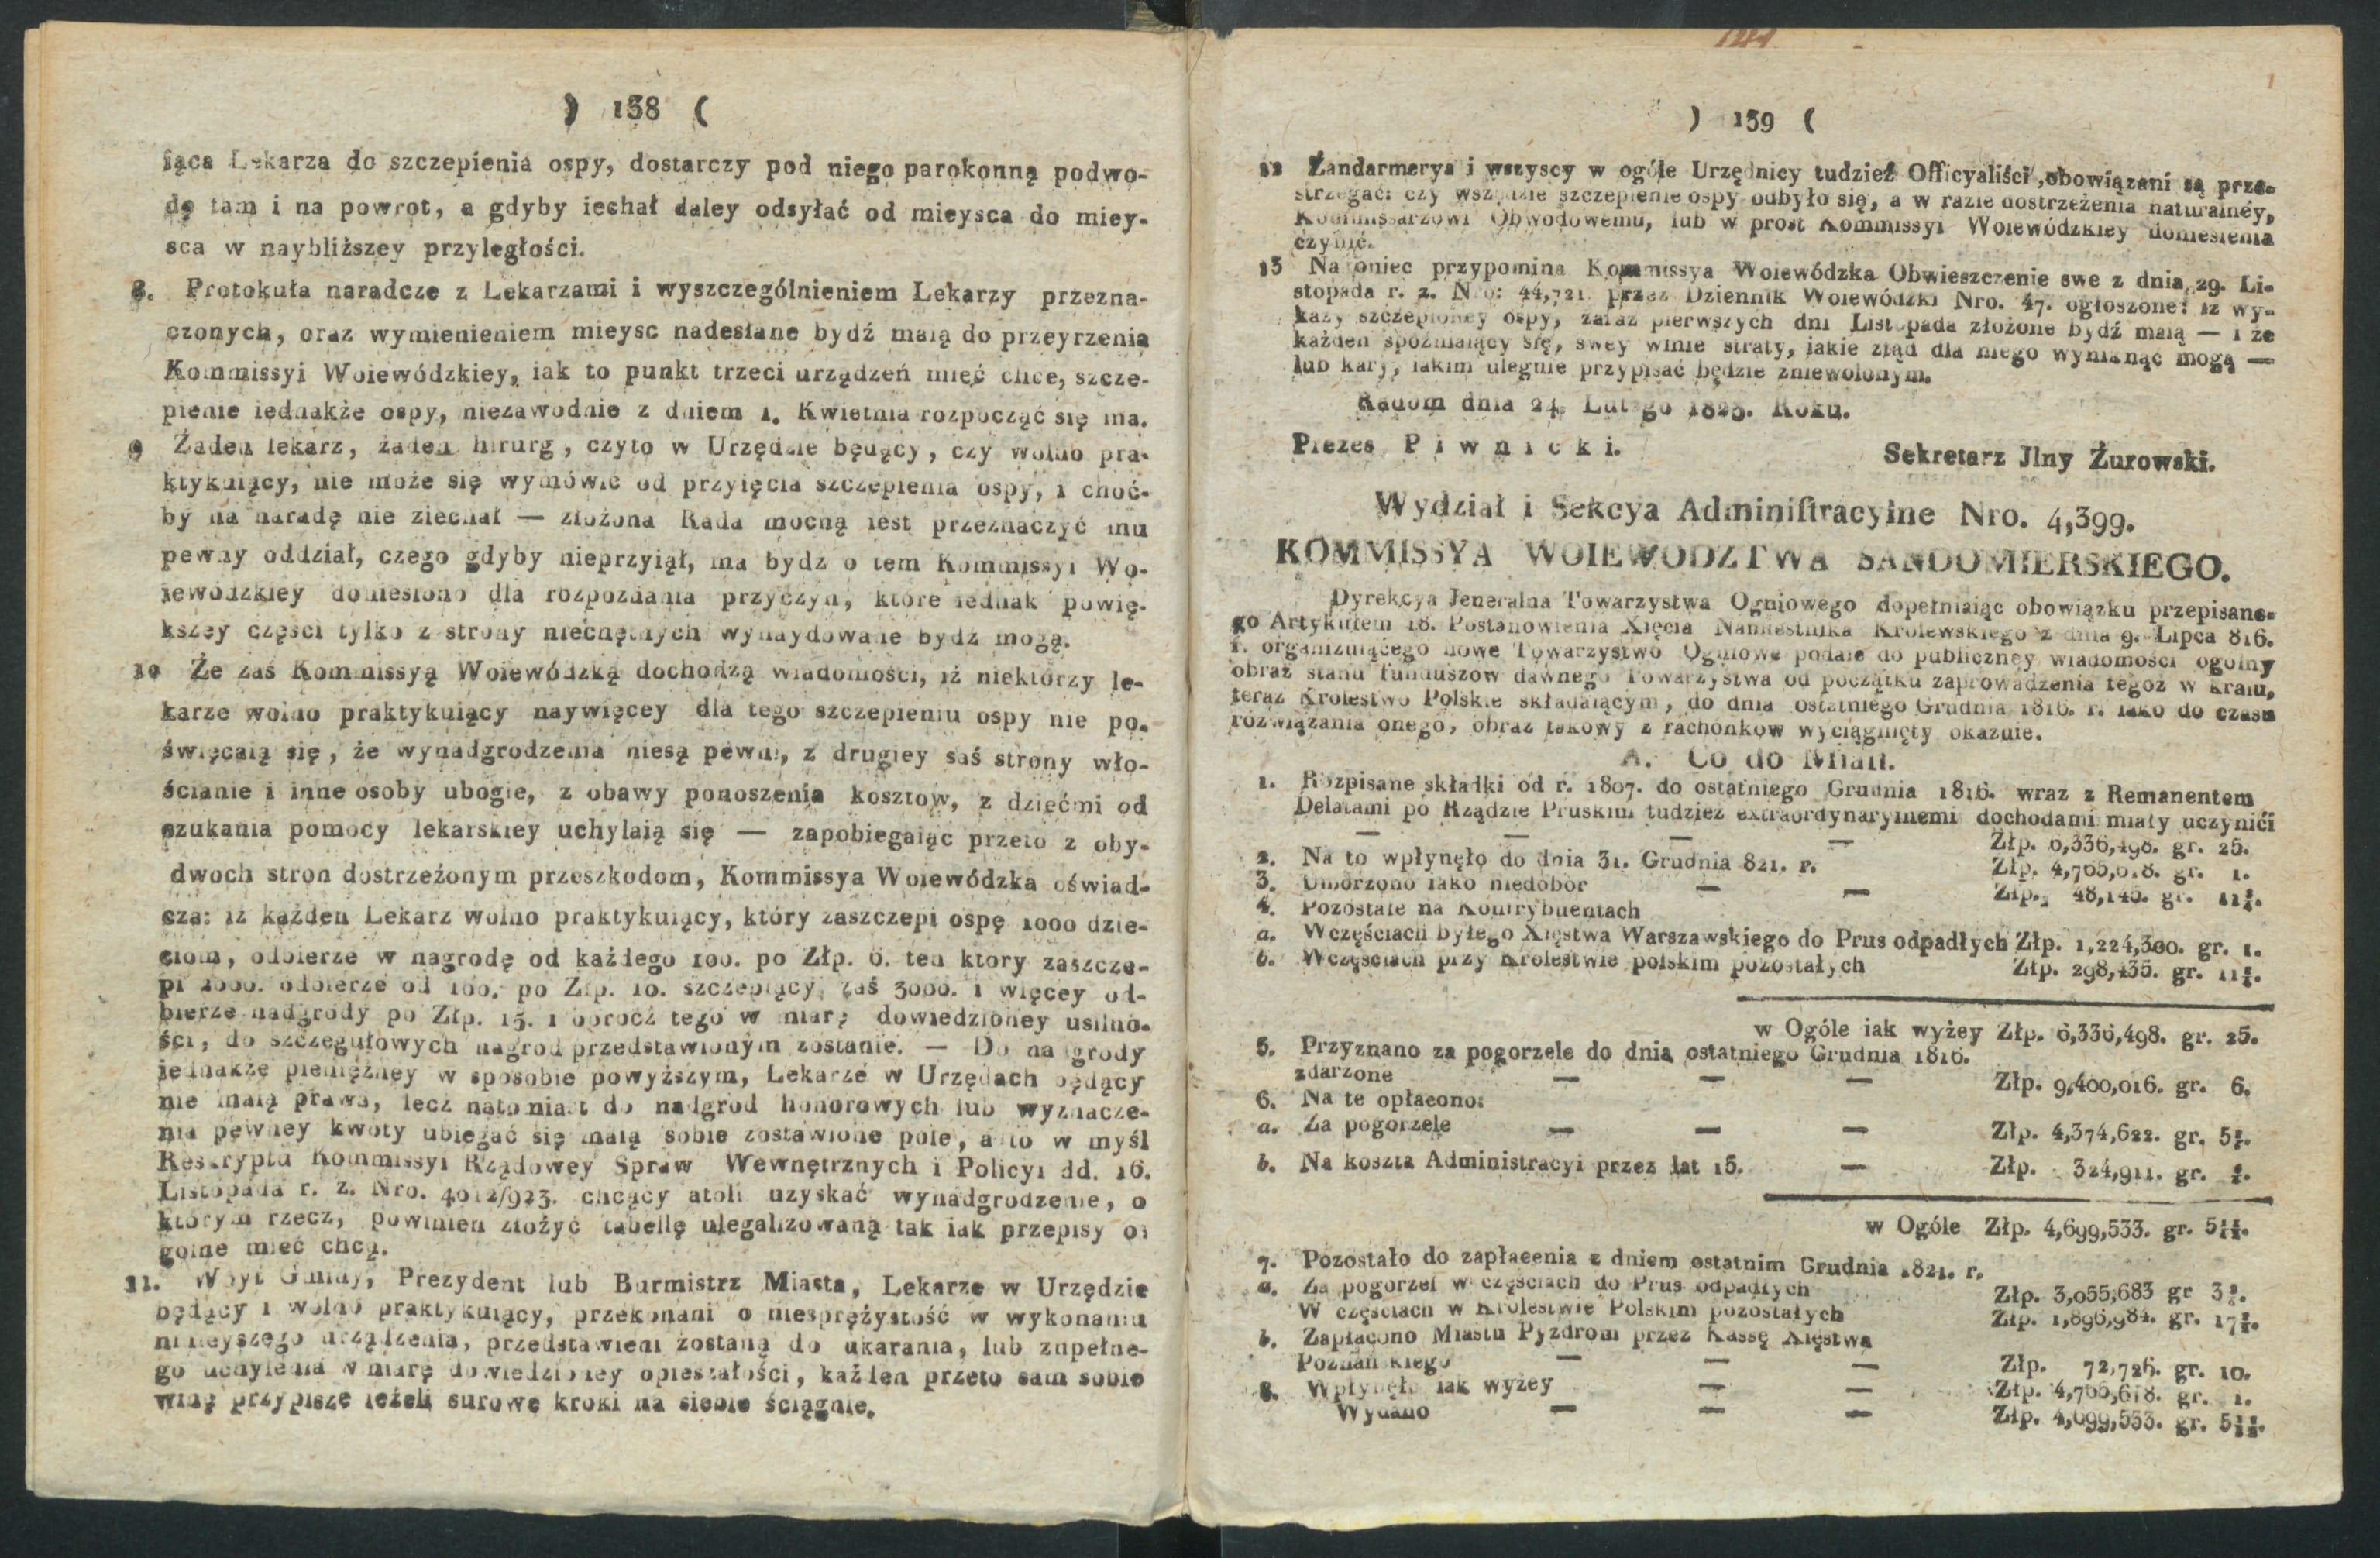 ) 138 (
iąca Lekarza do szczepienia ospy, dostarczy pod niego parokonną podwo-
dę tam i na powrot, a gdyby iechał daley odsyłać od mieysca do miey-
sca w naybliższey przyległości.
8. Protokuła naradcze z Lekarzami i wyszczególnieniem Lekarzy przezna-
czonych, oraz wymienieniem mieysc nadesłane bydź maią do przeyrzenia
Kommissyi Woiewódzkiey, iak to punkt trzeci urządzeń mieć chce, szcze-
pienie iednakże ospy, niezawodnie z dniem 1. Kwietnia rozpocząć się ma.
9 Żaden lekarz, żaden hirurg, czyto w Urzędzie będący, czy wolno pra-
ktykuiący, nie może się wymówić od przyięcia szczepienia ospy, i choć-
by na naradę nie ziechał — złożona Rada mocną iest przeznaczyć mu
pewny oddział, czego gdyby nieprzyiął, ma bydź o tem Kommissyi Wo-
iewódzkiey doniesiono dla rozpoznania przyczyn, które iednak powię-
kszey części tylko z strony niechętnych wynaydowane bydź mogą.
10 Że zaś Kommissyą Woiewódzką dochodzą wiadomości, iż niektórzy le-
karze wolno praktykuiący naywięcey dla tego szczepieniu ospy nie po-
święcaią się, że wynadgrodzenia niesą pewni, z drugiey saś strony wło-
ścianie i inne osoby ubogie, z obawy ponoszenia kosztow, z dziećmi od
szukania pomocy lekarskiey uchylaią się — zapobiegaiąc przeto z oby-
dwoch stron dostrzeżonym przeszkodom, Kommissya Woiewódzka oświad-
cza: iż każden Lekarz wolno praktykuiący, który zaszczepi ospę 1000 dzie-
ciom, odbierze w nagrodę od każdego 100. po Złp. 6. ten ktory zaszcze-
pi 2000. odbierze od 100. po Złp. 10. szczepiący zaś 3000. i więcey od-
bierze nadgrody po Złp. 15. i oprócz tego w miarę dowiedzioney usilno-
ści, do szczegułowych nagrod przedstawionym zostanie. — Do nadgrody
iednakże pieniężney w sposobie powyższym, Lekarze w Urzędach będący
nie maią prawa, lecz natomiast do nadgrod honorowych lub wyznacze-
nia pewney kwoty ubiegać się maią sobie zostawione pole, a to w myśl
Reskryptu Kommissyi Rządowey Spraw Wewnętrznych i Policyi dd. 16.
Listopada r. z. Nro. 4012/923. chcący atoli uzyskać wynadgrodzenie, o
którym rzecz, powinien złożyć tabellę ulegalizowaną tak iak przepisy o
golne mieć chcą.
11. Woyt Gminy, Prezydent lub Burmistrz Miasta, Lekarze w Urzędzie
będący i wolno praktykuiący, przekonani o niesprężystość w wykonaniu
ninieyszego urządzenia, przedstawieni zostaną do ukarania, lub zupełne-
go uchylenia w miarę dowiedzioney opieszałości, każden przeto sam sobie
winę przypisze ieżeli surowe kroki na siebie ściągnie.
) 139 (
12 Żandarmerya i wszyscy w ogóle Urzędnicy tudzież Officyaliści, obowiązani są prze-
strzegać: czy wszędzie szczepienie ospy odbyło się, a w razie dostrzeżenia naturalney,
Kommissarzowi Obwodowemu, lub w prost Kommissyi Woiewódzkiey doniesienia
czynić.
13 Nakoniec przypomina Kommissya Woiewódzka Obwieszczenie swe z dnia 29. Li-
stopada r. z. Nro: 44,721 przez Dziennik Woiewódzki Nro. 47. ogłoszone: iz wy-
kazy szczepioney ospy, zaraz pierwszych dni Listopada złożone bydź maią — i że
każden spóźniaiący się, swey winie straty, iakie ztąd dla niego wyniknąć mogą —
lub kary, iakim ulegnie przypisać będzie zniewolonym.
Radom dnia 24 Lutego 1823. Roku.
Prezes Piwnicki.
Sekretarz Jlny Żurowski.
Wydział i Sekcya Adminiſtracyine Nro. 4,399.
KOMMISSYA WOIEWODZTWA SANDOMIERSKIEGO.
Dyrekcya Jeneralna Towarzystwa Ogniowego dopełniaiąc obowiązku przepisane-
go Artykułem 18. Postanowienia Xięcia Namiestnika Krolewskiego z dnia 9. Lipca 816.
r. organizuiącego nowe Towarzystwo Ogniowe podaie do publiczney wiadomości ogolny
obraz stanu funduszow dawnego Towarzystwa od początku zaprowadzenia tegoż w kraiu,
teraz Krolestwo Polskie składaiącym, do dnia ostatniego Grudnia 1816. r. iako do czasu
rozwiązania onego, obraz takowy z rachonkow wyciągnięty okazuie.
A. Co do Miaſt.
1. Rozpisane składki od r. 1807. do ostatniego Grudnia 1816. wraz z Remanentem
Delatami po Rządzie Pruskim tudzież extraordynaryinemi dochodami miały uczynići
— — — — Złp. 6,336,498. gr. 25.
2. Na to wpłynęło do dnia 31. Grudnia 821. r. Złp. 4,765,618. gr. 1.
3. Umorzono iako niedobor — — Złp. 48,146. gr. 11½.
4. Pozostałe na Kontrybuentach
a. Wczęściach byłego Xięstwa Warszawskiego do Prus odpadłych Złp. 1,224,300. gr. 1.
b. Wczęściach przy Krolestwie polskim pozostałych Złp. 298,435. gr. 11½.
w Ogóle iak wyżey Złp. 6,336,498. gr. 25.
5. Przyznano za pogorzele do dnia ostatniego Grudnia 1816.
zdarzone — — — Złp. 9,400,016. gr. 6.
6. Na te opłacono:
a. Za pogorzele — — — Złp. 4,374,622. gr. 5
b. Na koszta Administracyi przez lat 15. — Złp. 324,911. gr.
w Ogóle Złp. 4,699,533. gr. 5
7. Pozostało do zapłacenia z dniem ostatnim Grudnia 1821. r.
a. Za pogorzel w częściach do Prus odpadłych Złp. 3,055,683 gr 3
W częściach w Krolestwie Polskim pozostałych Złp. 1,896,984. gr. 17
b. Zapłacono Miastu Pyzdrom przez Kassę Xięstwa
Poznańskiego — — — Złp. 72,726. gr. 10.
8. Wpłynęło iak wyżey — — Złp. 4,765,618. gr. 1.
Wydano — — — Złp. 4,699,533. gr. 5